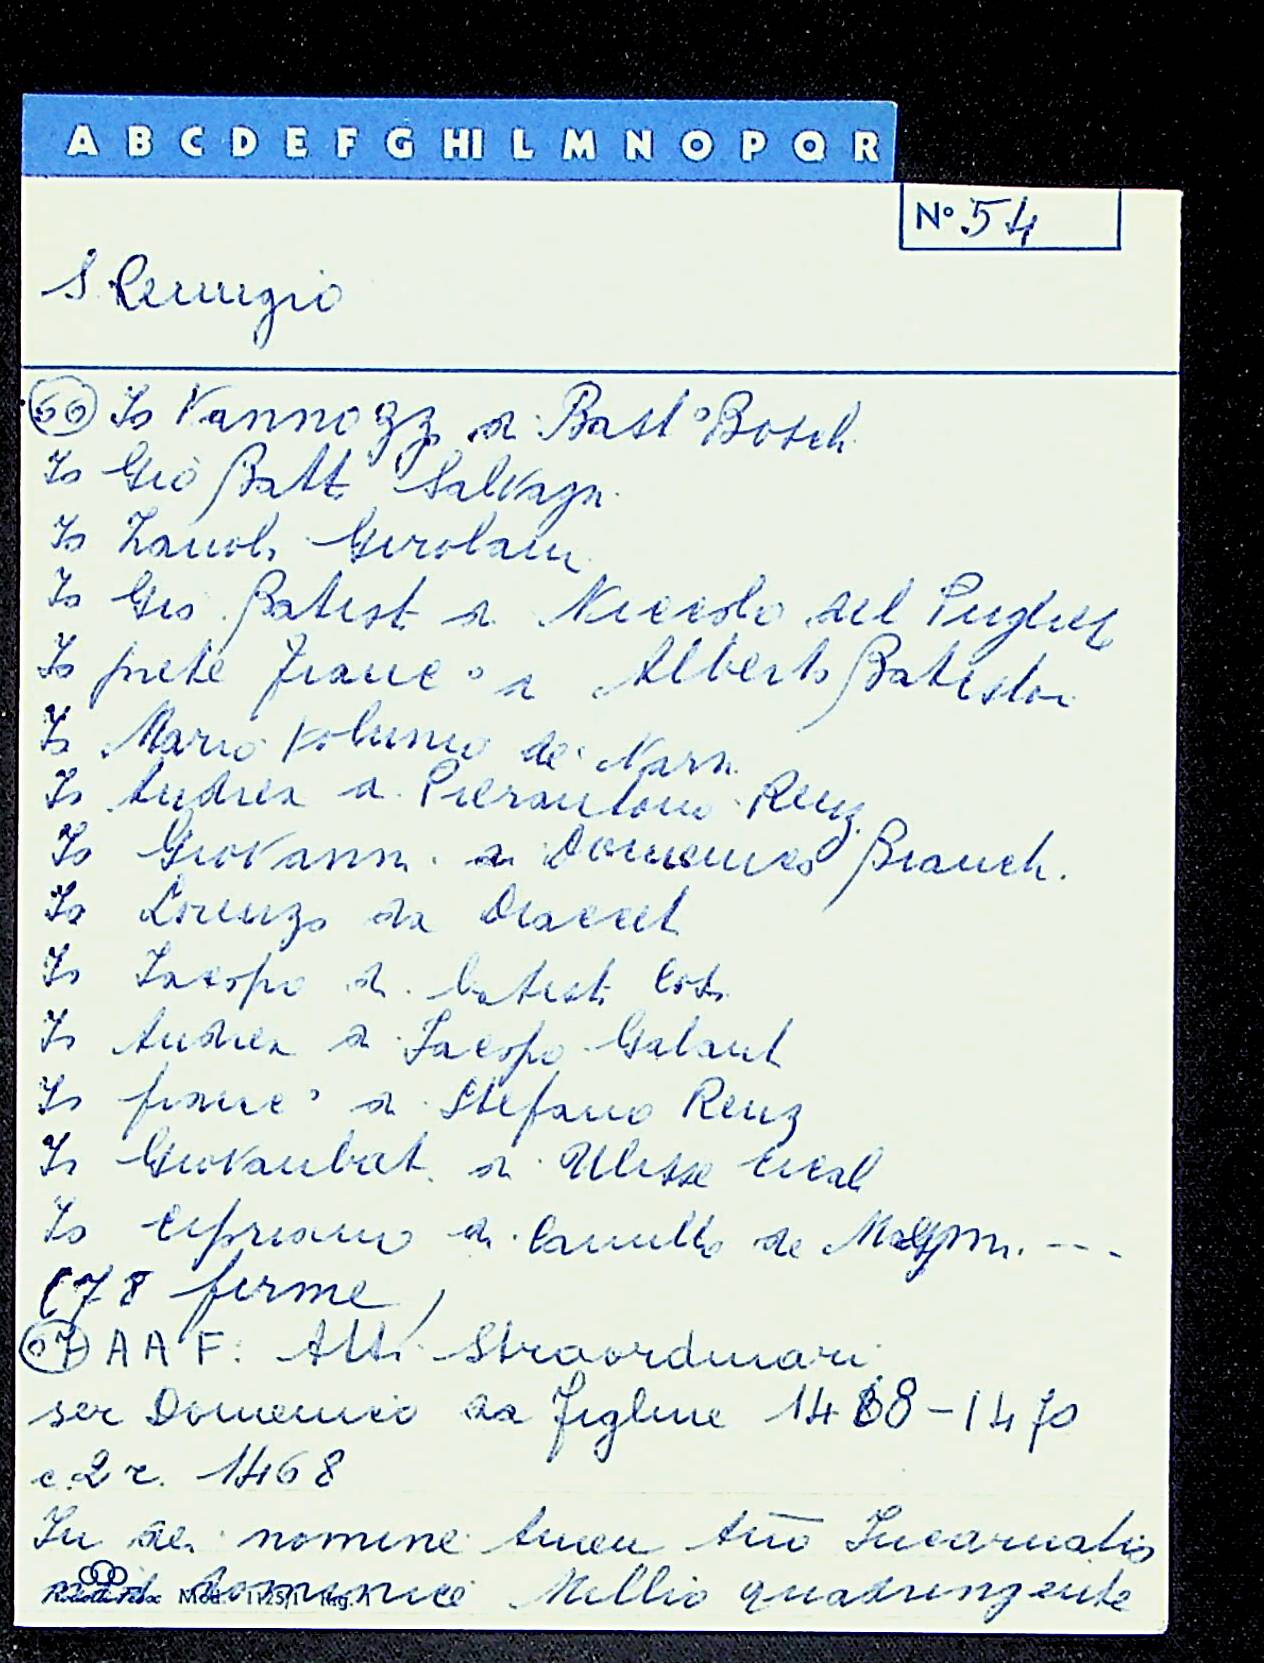 A B C D E F G HI L M N O P Q R
N° 54
S Remigio
66 Io Vannozz di Bast° Bosch.
Io Gio Batt Salvagn.
Io Zanob. Girolam
Io Gio Batist di Niccolo del Pugliese
Io prete Franc° di Alberto Batiston
Io Mario Volunio de Narn.
Io Andrea di Pierantono Renz.
Io Giovann. di Domenico Branch.
Io Lorenzo da Diaccet
Io Iacopo di Batist
Io Andrea di Iacopo Galant
Io franc° di Stefano Renz
Io Giovanbat. di Ulisse
Io Cipriano di Camillo de ---
(78 firme)
67 A A F: Atti Straordinari
ser Domenico da Figline 1468-1470
c.2 r. 1468
In dei nomine Amen Año Incarnatis
domenice Millio quadringente